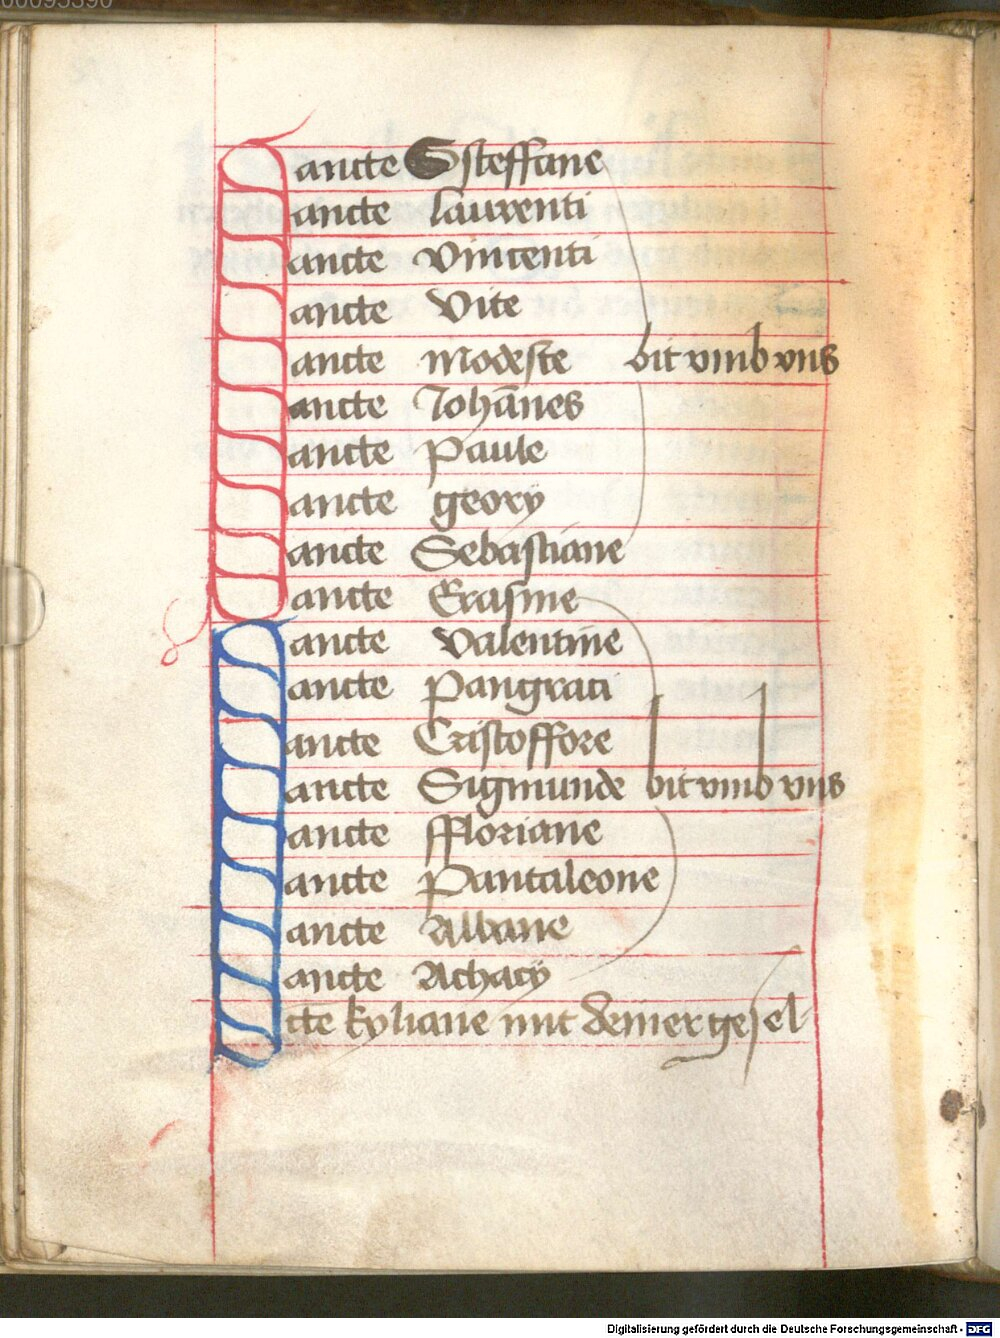 00095390
Sancte Ssteffane
Sancte laurenti
Sancte Vincenti
Sancte Vite
Sancte Modeste bit vmb vns
Sancte Johānes
Sancte Paule
Sancte geory
Sancte Sebastiane
Sancte Erasme
Sancte Valentine
Sancte Pangraci
Sancte Cristoffore
Sancte Sigmunde bit vmb vns
Sancte ffloriane
Sancte Pantaleone
Sancte Albane
Sancte Achacÿ
Scte kyliane mit deiner gesel
Digitalisierung gefördert durch die Deutsche Forschungsgemeinschaft - DFG